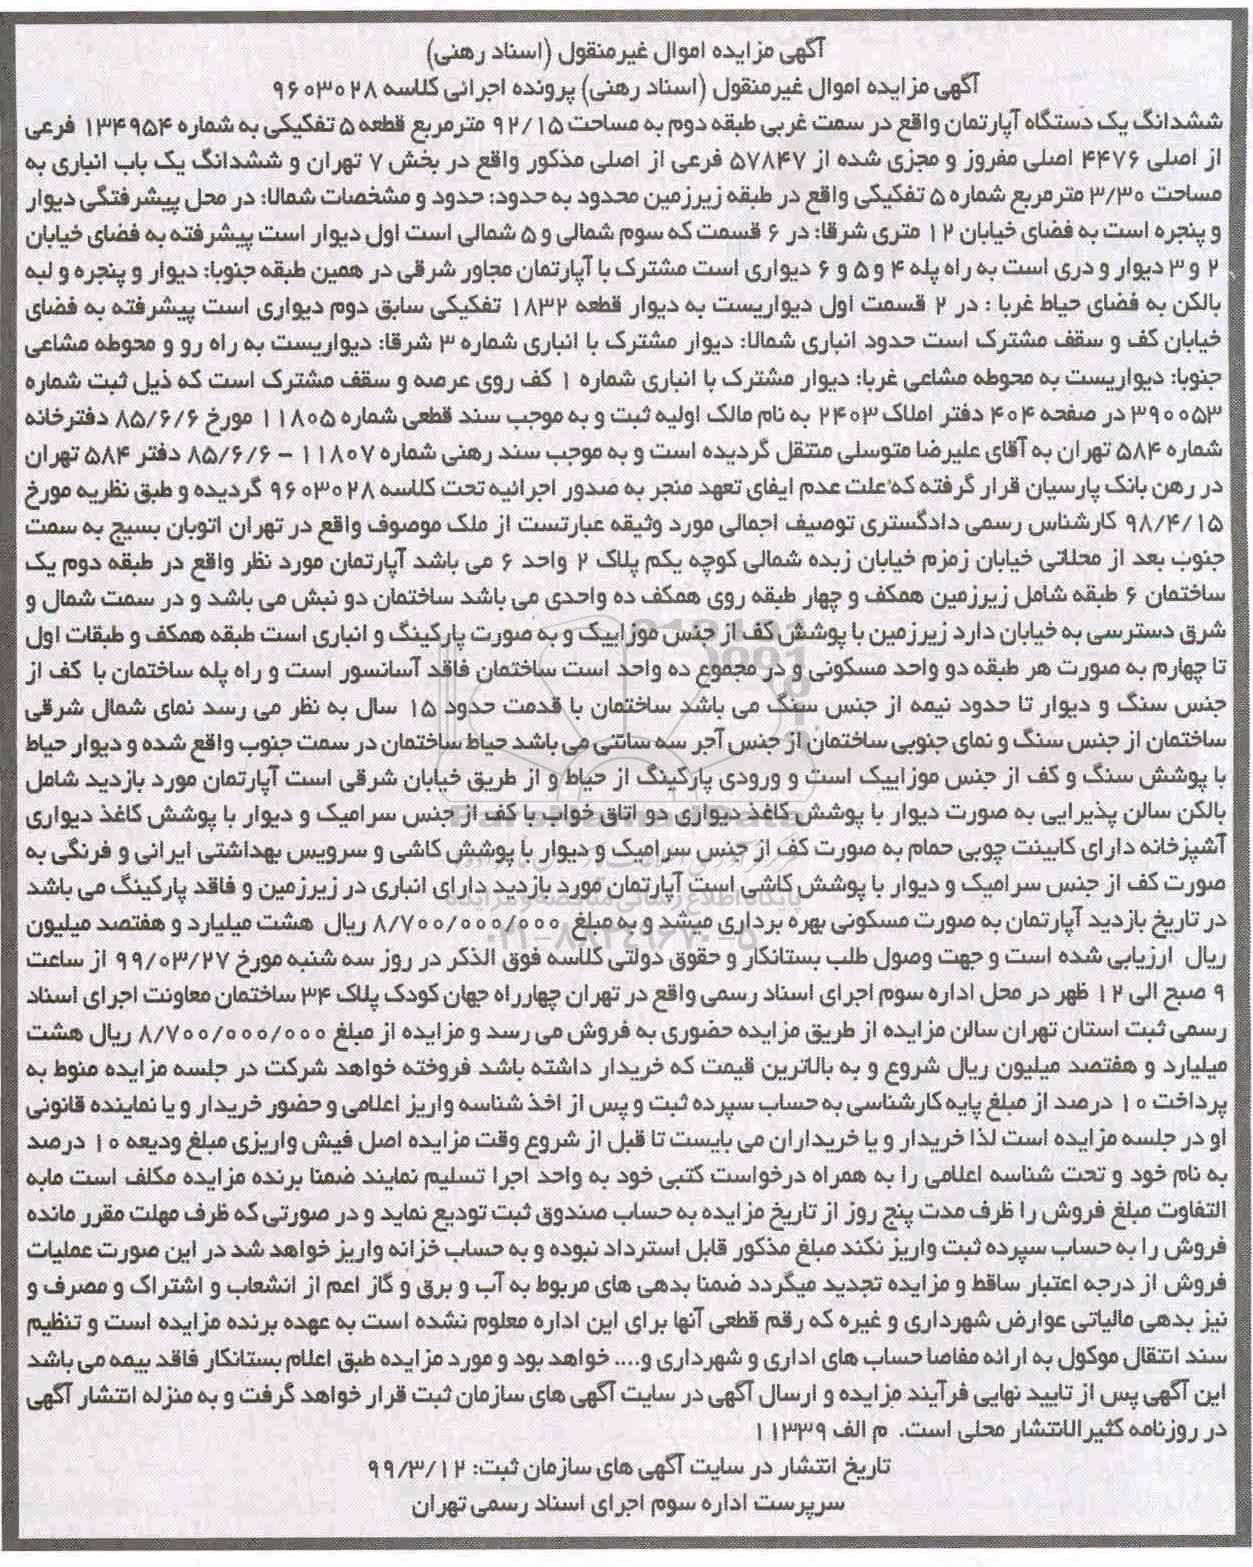 آگهی مزایده اموال غیرمنقول (اسناد رهنی)
آگهی مزایده اموال غیرمنقول (اسناد رهنی) پرونده اجرائی کلاسه ۹۶۰۳۰۲۸
ششدانگ یک دستگاه آپارتمان واقع در سمت غربی طبقه دوم به مساحت ۹۲/۱۵ مترمربع قطعه ۵ تفکیکی به شماره ۱۳۴۹۵۴ فرعی
از اصلی ۴۴۷۶ اصلی مفروز و مجزی شده از ۵۷۸۴۷ فرعی از اصلی مذکور واقع در بخش ۷ تهران و ششدانگ یک باب انباری به
مساحت ۳/۳۰ مترمربع شماره ۵ تفکیکی واقع در طبقه زیرزمین محدود به حدود: حدود و مشخصات شمالا: در محل پیشرفتگی دیوار
و پنجره است به فضای خیابان ۱۲ متری شرقا: در ۶ قسمت که سوم شمالی و ۵ شمالی است اول دیوار است پیشرفته به فضای خیابان
۲ و ۳ دیوار و دری است به راه پله ۴ و ۵ و ۶ دیواری است مشترک با آپارتمان مجاور شرقی در همین طبقه جنوبا: دیوار و پنجره و لبه
بالکن به فضای حیاط غربا : در ۲ قسمت اول دیواریست به دیوار قطعه ۱۸۳۲ تفکیکی سابق دوم دیواری است پیشرفته به فضای
خیابان کف و سقف مشترک است حدود انباری شمالا: دیوار مشترک با انباری شماره ۳ شرقا: دیواریست به راه رو و محوطه مشاعی
جنوبا: دیواریست به محوطه مشاعی غربا: دیوار مشترک با انباری شماره ۱ کف روی عرصه و سقف مشترک است که ذیل ثبت شماره
۳۹۰۰۵۳ در صفحه ۴۰۴ دفتر املاک ۲۴۰۳ به نام مالک اولیه ثبت و به موجب سند قطعی شماره ۱۱۸۰۵ مورخ ۸۵/۶/۶ دفترخانه
شماره ۵۸۴ تهران به آقای علیرضا متوسلی منتقل گردیده است و به موجب سند رهنی شماره ۱۱۸۰۷ – ۸۵/۶/۶ دفتر ۵۸۴ تهران
در رهن بانک پارسیان قرار گرفته که علت عدم ایفای تعهد منجر به صدور اجرائیه تحت کلاسه ۹۶۰۳۰۲۸ گردیده و طبق نظریه مورخ
۹۸/۴/۱۵ کارشناس رسمی دادگستری توصیف اجمالی مورد وثیقه عبارتست از ملک موصوف واقع در تهران اتوبان بسیج به سمت
جنوب بعد از محلاتی خیابان زمزم خیابان زبده شمالی کوچه یکم پلاک ۲ واحد ۶ می باشد آپارتمان مورد نظر واقع در طبقه دوم یک
ساختمان ۶ طبقه شامل زیرزمین همکف و چهار طبقه روی همکف ده واحدی می باشد ساختمان دو نبش می باشد و در سمت شمال و
شرق دسترسی به خیابان دارد زیرزمین با پوشش کف از جنس موزاییک و به صورت پارکینگ و انباری است طبقه همکف و طبقات اول
تا چهارم به صورت هر طبقه دو واحد مسکونی و در مجموع ده واحد است ساختمان فاقد آسانسور است و راه پله ساختمان با کف از
جنس سنگ و دیوار تا حدود نیمه از جنس سنگ می باشد ساختمان با قدمت حدود ۱۵ سال به نظر می رسد نمای شمال شرقی
ساختمان از جنس سنگ و نمای جنوبی ساختمان از جنس آجر سه سانتی می باشد حیاط ساختمان در سمت جنوب واقع شده و دیوار حیاط
با پوشش سنگ و کف از جنس موزاییک است و ورودی پارکینگ از حیاط و از طریق خیابان شرقی است آپارتمان مورد بازدید شامل
بالکن سالن پذیرایی به صورت دیوار با پوشش کاغذ دیواری دو اتاق خواب با کف از جنس سرامیک و دیوار با پوشش کاغذ دیواری
آشپزخانه دارای کابینت چوبی حمام به صورت کف از جنس سرامیک و دیوار با پوشش کاشی و سرویس بهداشتی ایرانی و فرنگی به
صورت کف از جنس سرامیک و دیوار با پوشش کاشی است آپارتمان مورد بازدید دارای انباری در زیرزمین و فاقد پارکینگ می باشد
در تاریخ بازدید آپارتمان به صورت مسکونی بهره برداری میشد و به مبلغ ۸/۷۰۰/۰۰۰/۰۰۰ ریال هشت میلیارد و هفتصد میلیون
ریال ارزیابی شده است و جهت وصول طلب بستانکار و حقوق دولتی کلاسه فوق الذکر در روز سه شنبه مورخ ۹۹/۰۳/۲۷ از ساعت
۹ صبح الی ۱۲ ظهر در محل اداره سوم اجرای اسناد رسمی واقع در تهران چهارراه جهان کودک پلاک ۳۴ ساختمان معاونت اجرای اسناد
رسمی ثبت استان تهران سالن مزایده از طریق مزایده حضوری به فروش می رسد و مزایده از مبلغ ۸/۷۰۰/۰۰۰/۰۰۰ ریال هشت
میلیارد و هفتصد میلیون ریال شروع و به بالاترین قیمت که خریدار داشته باشد فروخته خواهد شرکت در جلسه مزایده منوط به
پرداخت ۱۰ درصد از مبلغ پایه کارشناسی به حساب سپرده ثبت و پس از اخذ شناسه واریز اعلامی و حضور خریدار و یا نماینده قانونی
او در جلسه مزایده است لذا خریدار و یا خریداران می بایست تا قبل از شروع وقت مزایده اصل فیش واریزی مبلغ ودیعه ۱۰ درصد
به نام خود و تحت شناسه اعلامی را به همراه درخواست کتبی خود به واحد اجرا تسلیم نمایند ضمنا برنده مزایده مکلف است مابه
التفاوت مبلغ فروش را ظرف مدت پنج روز از تاریخ مزایده به حساب صندوق ثبت تودیع نماید و در صورتی که ظرف مهلت مقرر مانده
فروش را به حساب سپرده ثبت واریز نکند مبلغ مذکور قابل استرداد نبوده و به حساب خزانه واریز خواهد شد در این صورت عملیات
فروش از درجه اعتبار ساقط و مزایده تجدید میگردد ضمنا بدهی های مربوط به آب و برق و گاز اعم از انشعاب و اشتراک و مصرف و
نیز بدهی مالیاتی عوارض شهرداری و غیره که رقم قطعی آنها برای این اداره معلوم نشده است به عهده برنده مزایده است و تنظیم
سند انتقال موکول به ارائه مفاصا حساب های اداری و شهرداری و.... خواهد بود و مورد مزایده طبق اعلام بستانکار فاقد بیمه می باشد
این آگهی پس از تایید نهایی فرآیند مزایده و ارسال آگهی در سایت آگهی های سازمان ثبت قرار خواهد گرفت و به منزله انتشار آگهی
در روزنامه کثیرالانتشار محلی است. م الف ۱۱۳۳۹
تاریخ انتشار در سایت آگهی های سازمان ثبت: ۹۹/۳/۱۲
سرپرست اداره سوم اجرای اسناد رسمی تهران